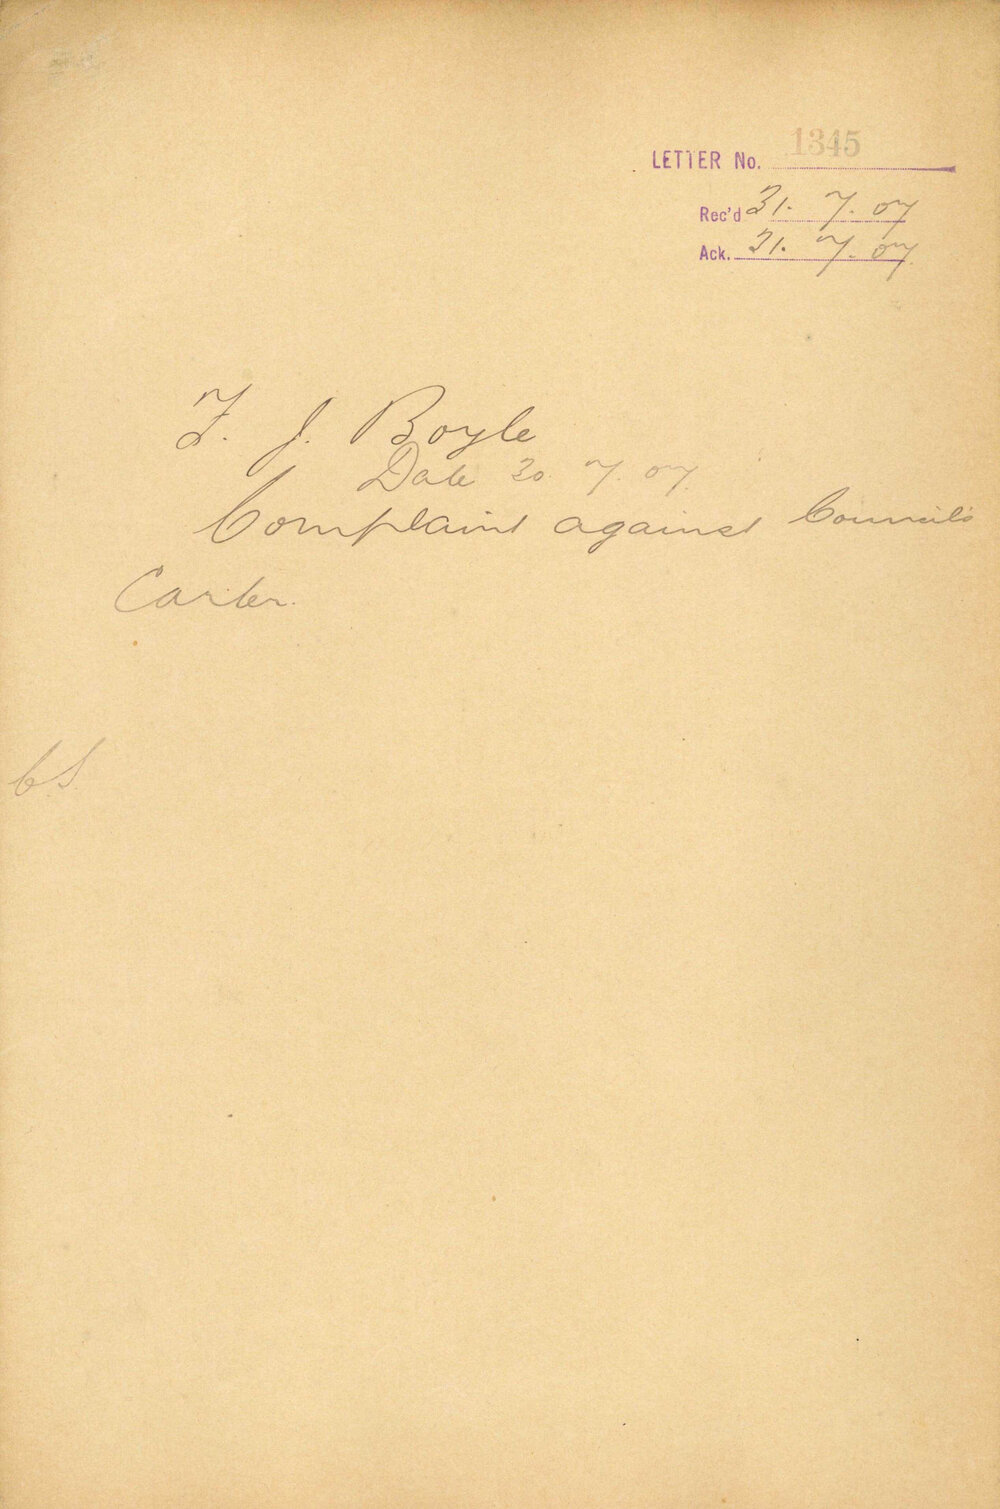 LETTER No. 1345
Rec'd 31. 7. 07
Ack. 31. 7. 07
F. J. Boyle
Date 30. 7. 07.
Complaint against Council's
Carter.
CS